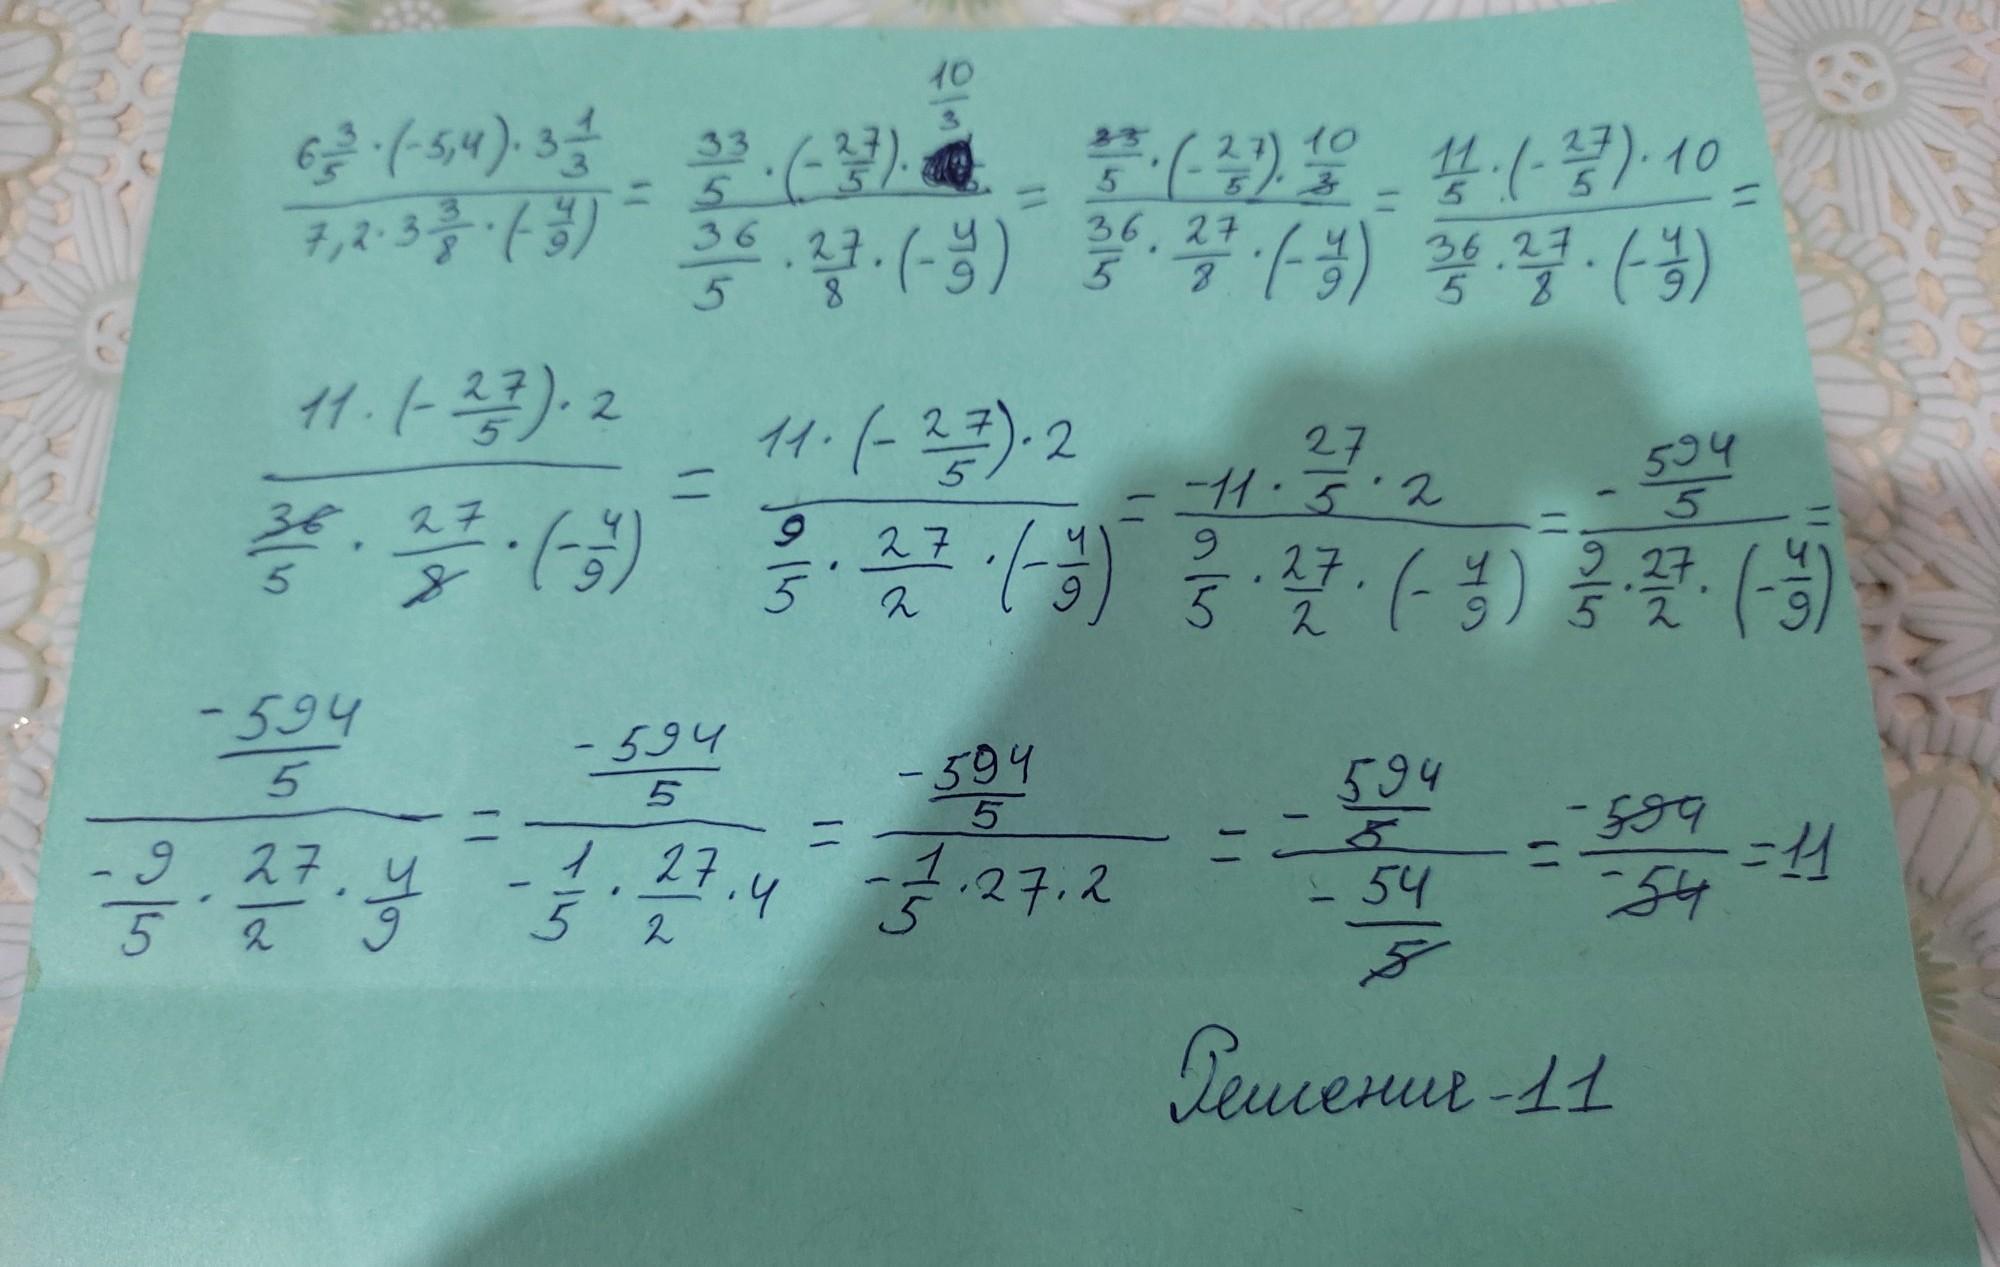 6 3/5 · (-5,4) · 3 1/3 / 7,2 · 3 3/8 · (-4/9) = 33/5 · (-27/5) · 10/3 / 36/5 · 27/8 · (-4/9) = 33/5 · (-27/5) · 10/3 / 36/5 · 27/8 · (-4/9) = 11/5 · (-27/5) · 10 / 36/5 · 27/8 · (-4/9) =
11 · (-27/5) · 2 / 36/5 · 27/8 · (-4/9) = 11 · (-27/5) · 2 / 9/5 · 27/2 · (-4/9) = -11 · 27/5 · 2 / 9/5 · 27/2 · (-4/9) = -594/5 / 9/5 · 27/2 · (-4/9) =
-594/5 / -9/5 · 27/2 · 4/9 = -594/5 / -1/5 · 27/2 · 4 = -594/5 / -1/5 · 27 · 2 = -594/5 / -54/5 = -594 / -54 = 11
Решения -11